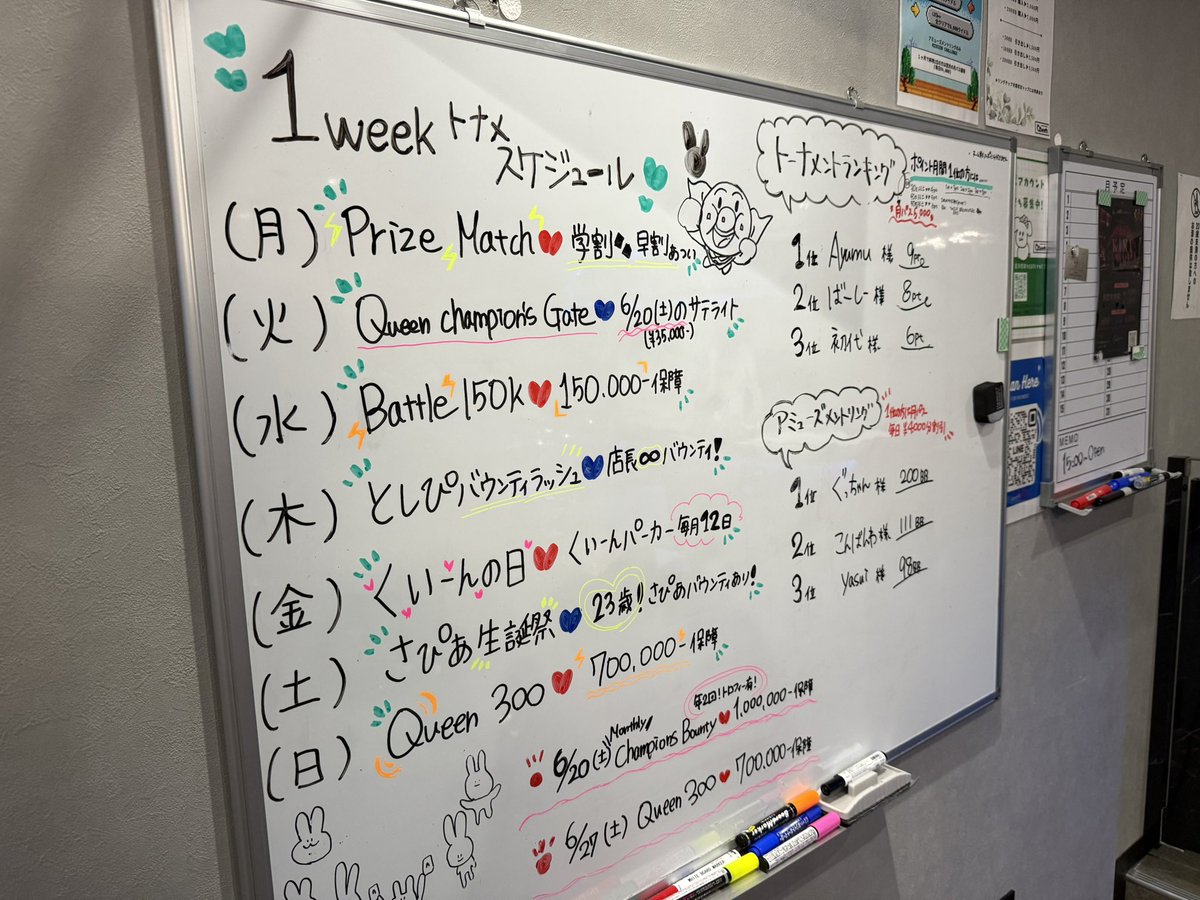 1 week トナメ
スケジュール
(月) Prize Match 学割 早割あつい
(火) Queen champion's Gate 6/20(土)のサテライト
(¥35,000-)
(水) Battle 150k 150.000-保障
(木) としぴバウンティラッシュ 店長∞バウンティ!
(金) くいーんの日 くいーんパーカー 毎月12日
(土) さぴあ生誕祭 23歳! さぴあバウンティあり!
(日) Queen 300 700,000-保障
年2回!トロフィー有!
Monthly
6/20(土) Champions Bounty 1,000,000-保障
6/27(土) Queen 300 700,000-保障
トーナメントランキング
ポイント月間1位の方には
1位 Ayumu 様 9pt
2位 ばーしー様 8pt
3位 初代様 6pt
アミューズメントリング
毎日¥4000分割引
1位 ぐっちゃん様 200BB
2位 こんばんわ様 111BB
3位 yasui 様 98BB
月予定
MEMO
15:00~Open
LINE